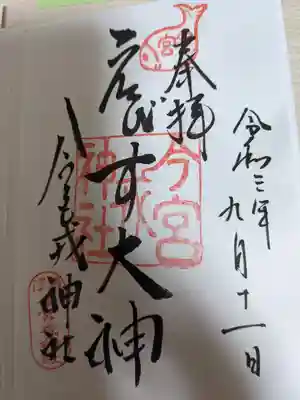 令和三年九月十一日
奉拝
びす大神
今宮戎神社
今宮
戎
神社